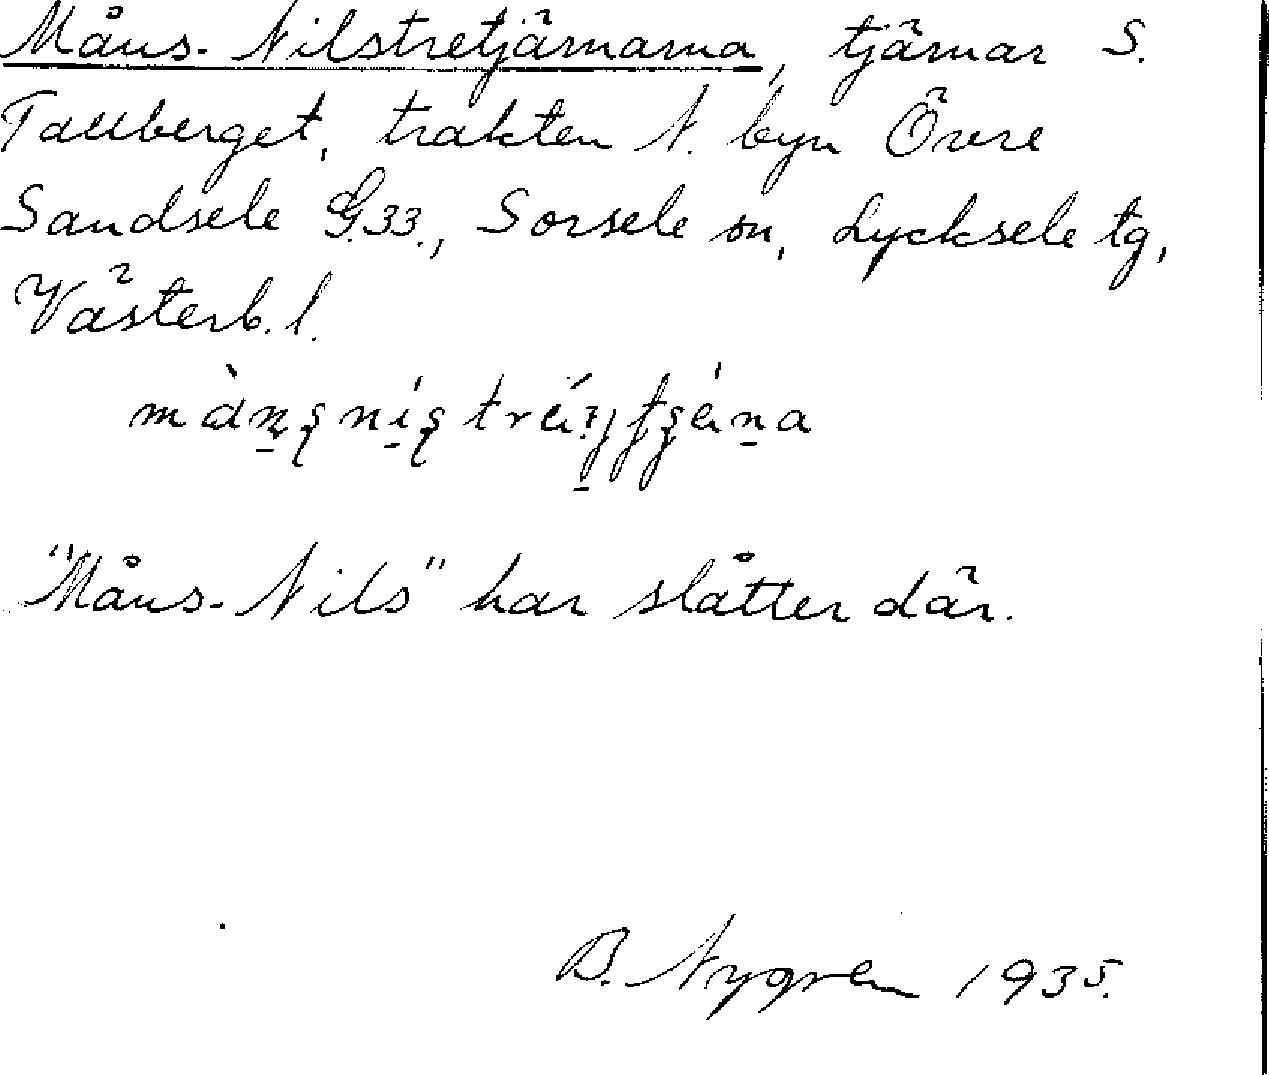 Måns-Nilstretjärnarna, tjärnar S.
Tallberget, trakten N. byn Övre
Sandsele G.33., Sorsele sn, Lycksele tg,
Västerb. l.
"Måns-Nils" har slåtter där.
B. Nygren 1935.